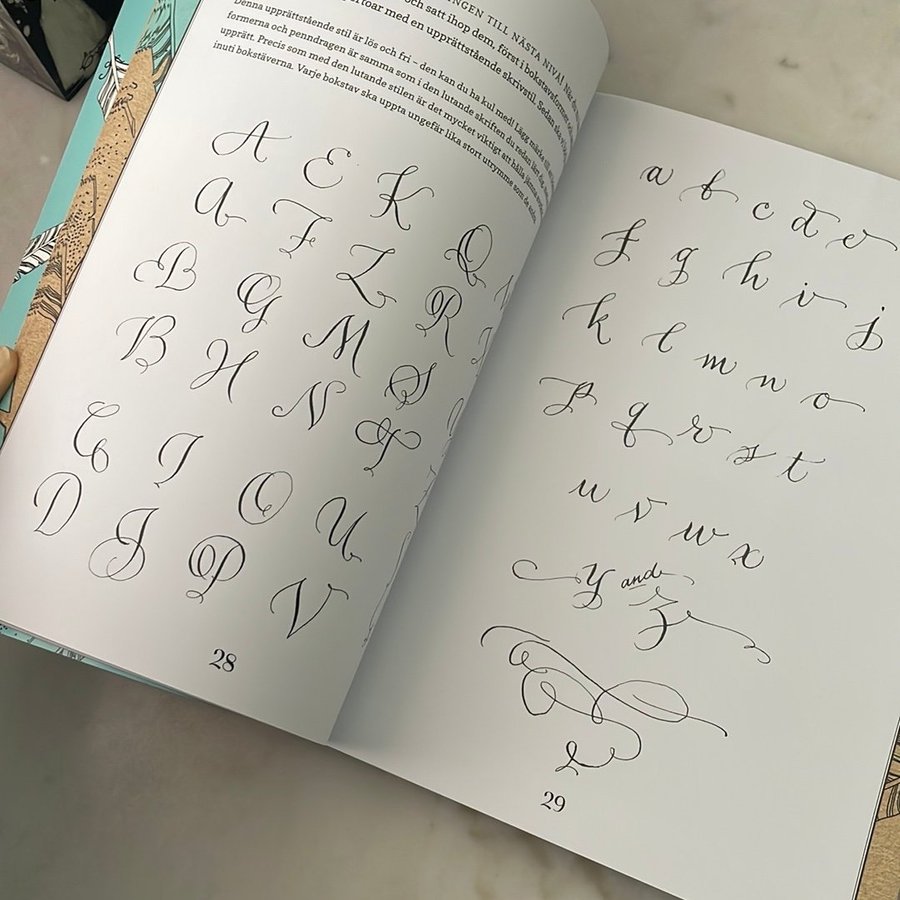 TILL NÄSTA NIVÅ! När du
och satt ihop dem, först i bokstavsformer
med en upprättstående skrivstil. Sedan ska vi
Denna upprättstående stil är lös och fri – den kan du ha kul med! Lägg märke till att
formerna och penndragen är samma som i den lutande skriften du redan lärt dig,
upprätt. Precis som med den lutande stilen är det mycket viktigt att hålla jämna
inuti bokstäverna. Varje bokstav ska uppta ungefär lika stort utrymme som de andra.
A E K Q
A F L R
B G M S
B H N T
C I O U
D J P V
28
a b c d e
f g h i j
k l m n o
p q r s t
u v w x
y and z
29